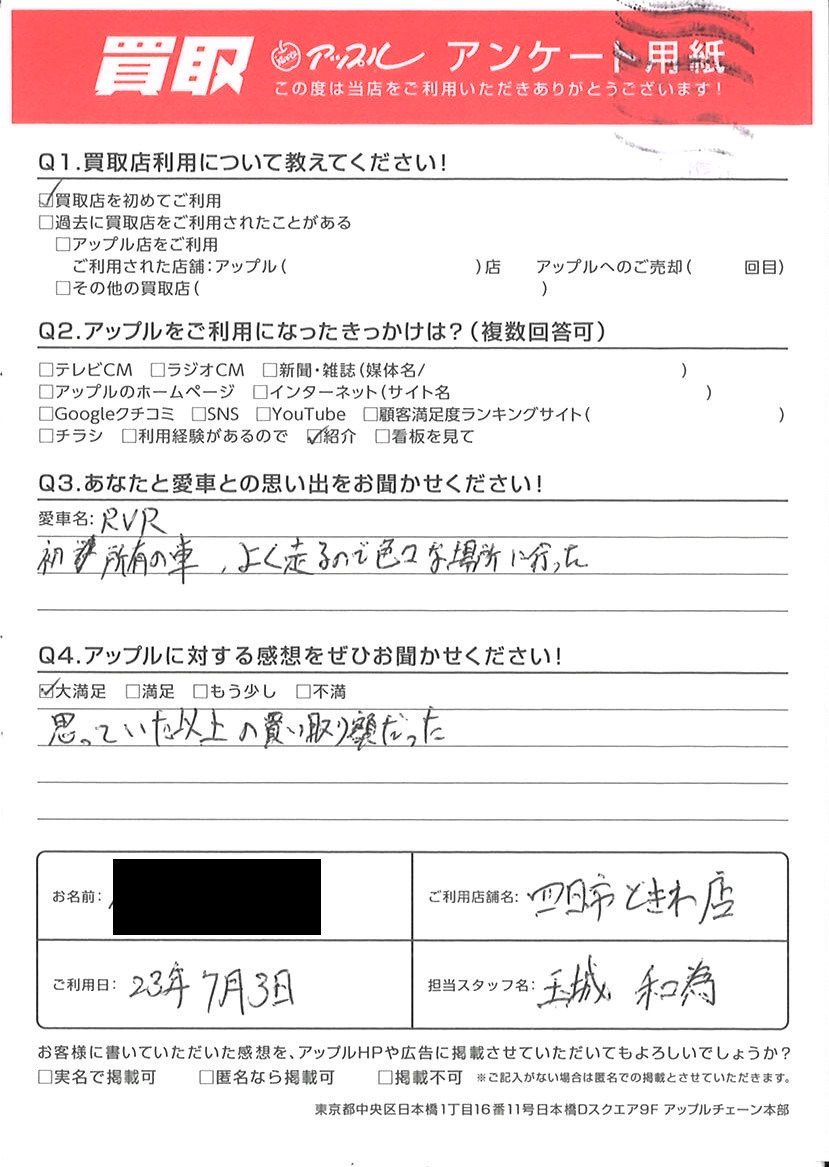 買取 アップル アンケート用紙
この度は当店をご利用いただきありがとうございます!
Q1.買取店利用について教えてください!
☑買取店を初めてご利用
□過去に買取店をご利用されたことがある
□アップル店をご利用
ご利用された店舗:アップル( )店 アップルへのご売却( 回目)
□その他の買取店( )
Q2.アップルをご利用になったきっかけは?(複数回答可)
□テレビCM □ラジオCM □新聞・雑誌(媒体名/ )
□アップルのホームページ □インターネット(サイト名 )
□Googleクチコミ □SNS □YouTube □顧客満足度ランキングサイト( )
□チラシ □利用経験があるので ☑紹介 □看板を見て
Q3.あなたと愛車との思い出をお聞かせください!
愛車名:RVR
初 所有の車、よく走るので色々な場所に行った
Q4.アップルに対する感想をぜひお聞かせください!
☑大満足 □満足 □もう少し □不満
思っていた以上の買い取り額だった
お名前:
ご利用店舗名:四日市ときわ店
ご利用日:23年7月3日
担当スタッフ名:玉城 和為
お客様に書いていただいた感想を、アップルHPや広告に掲載させていただいてもよろしいでしょうか?
□実名で掲載可 □匿名なら掲載可 □掲載不可 ※ご記入がない場合は匿名での掲載とさせていただきます。
東京都中央区日本橋1丁目16番11号日本橋Dスクエア9F アップルチェーン本部